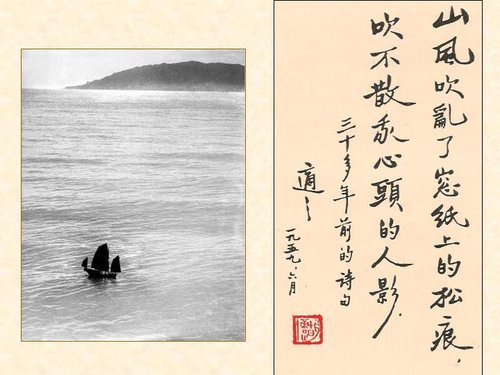 山風吹亂了窓紙上的松痕.
吹不散我心頭的人影.
三十多年前的詩句
適之
一九五九、六月